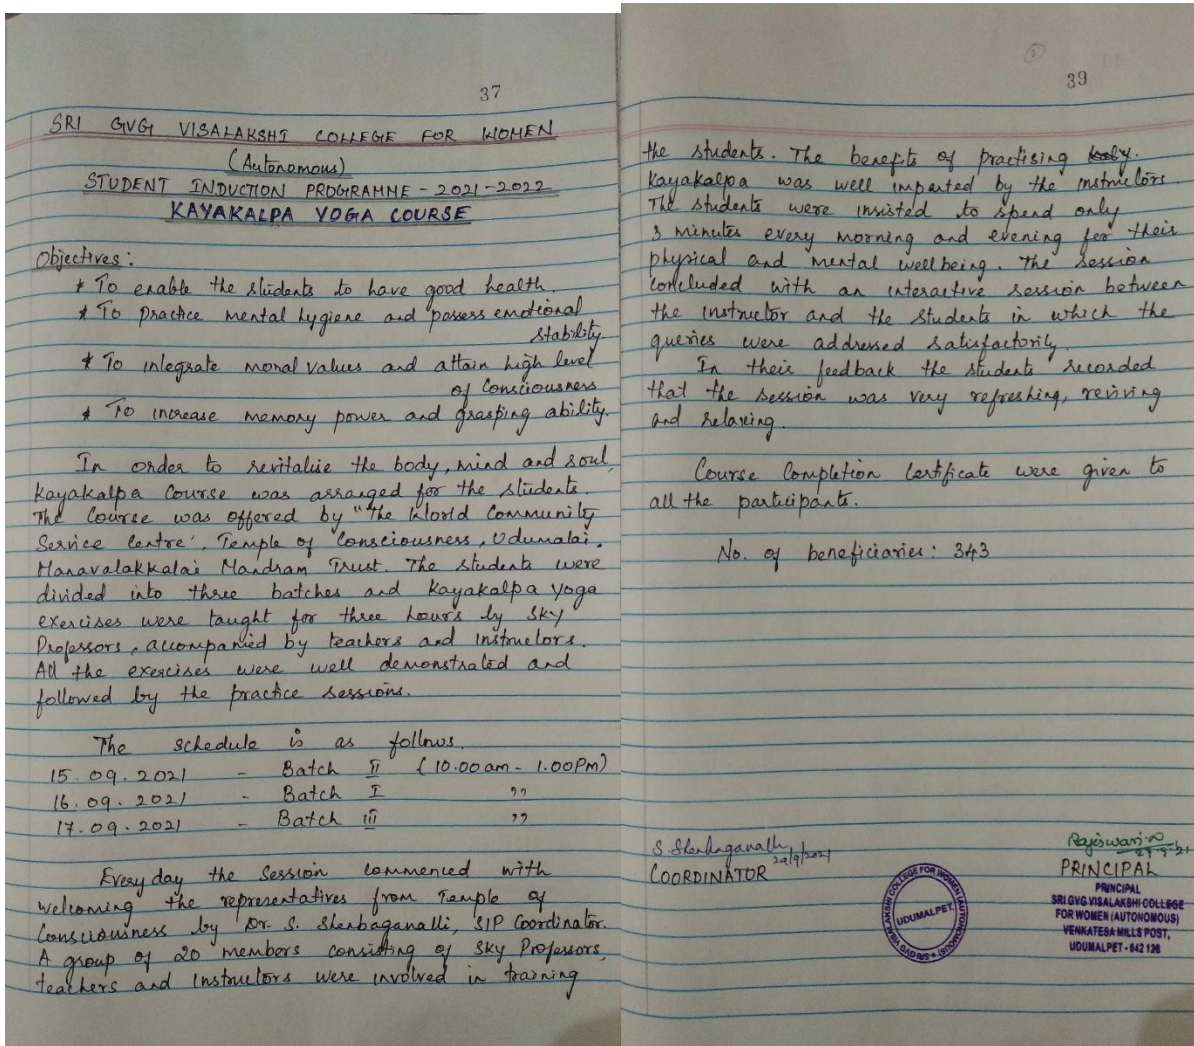 37
SRI GVG VISALAKSHI COLLEGE FOR WOMEN
(Autonomous)
STUDENT INDUCTION PROGRAMME - 2021-2022
KAYAKALPA YOGA COURSE
Objectives:
* To enable the students to have good health.
* To practice mental hygiene and possess emotional
stability.
* To integrate moral values and attain high level
of Consciousness
* To increase memory power and grasping ability.
In order to revitalise the body, mind and soul,
Kayakalpa Course was arranged for the students.
The Course was offered by "The World Community
Service Centre', Temple of Consciousness, Udumalai.
Manavalakkalai Mandram Trust. The students were
divided into three batches and Kayakalpa yoga
exercises were taught for three hours by SKY
Professors, accompanied by teachers and instructors.
All the exercises were well demonstrated and
followed by the practice sessions.
The schedule is as follows.
15.09.2021 - Batch II (10.00am - 1.00Pm)
16.09.2021 - Batch I ,,
17.09.2021 - Batch III ,,
Every day the Session commenced with
welcoming the representatives from Temple of
Consciousness by Dr. S. Shenbaganalli, SIP Coordinator.
A group of 20 members consisting of SKY Professors,
teachers and Instructors were involved in training
39
the students. The benefits of practising
Kayakalpa was well imparted by the instructors.
The students were insisted to spend only
3 minutes every morning and evening for their
physical and mental wellbeing. The session
concluded with an interactive session between
the instructor and the students in which the
queries were addressed satisfactorily.
In their feedback the students recorded
that the session was very refreshing, reviving
and relaxing.
Course Completion Certificate were given to
all the participants.
No. of beneficiaries: 343
S. Shenbaganalli
29/9/2021
COORDINATOR
SRI GVG VISALAKSHI COLLEGE FOR WOMEN (AUTONOMOUS)
UDUMALPET.
Rajeswari
29.9.21
PRINCIPAL
PRINCIPAL
SRI GVG VISALAKSHI COLLEGE
FOR WOMEN (AUTONOMOUS)
VENKATESA MILLS POST,
UDUMALPET - 642 126